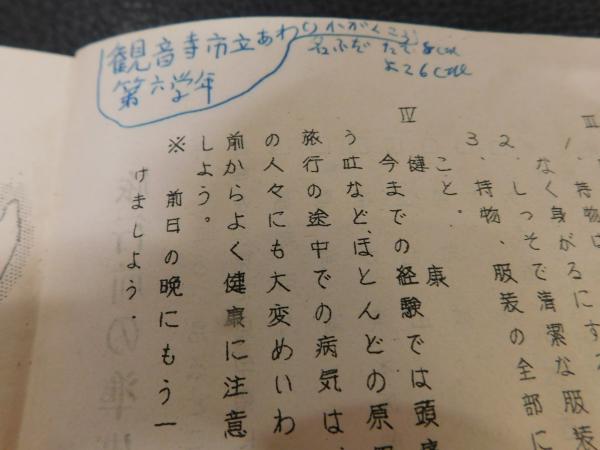 観音寺市立あわ
第六学年
名ふだ たて8cm
よこ6cm
III
1. 持物
なく身がるにする
2. しっそで清潔な服装
3. 持物、服装の全部に
こと。
IV 健康
今までの経験では頭痛
う吐など、ほとんどの原
旅行の途中での病気は
の人々にも大変めいわ
前からよく健康に注意
しよう。
※ 前日の晩にもう一
けましよう.